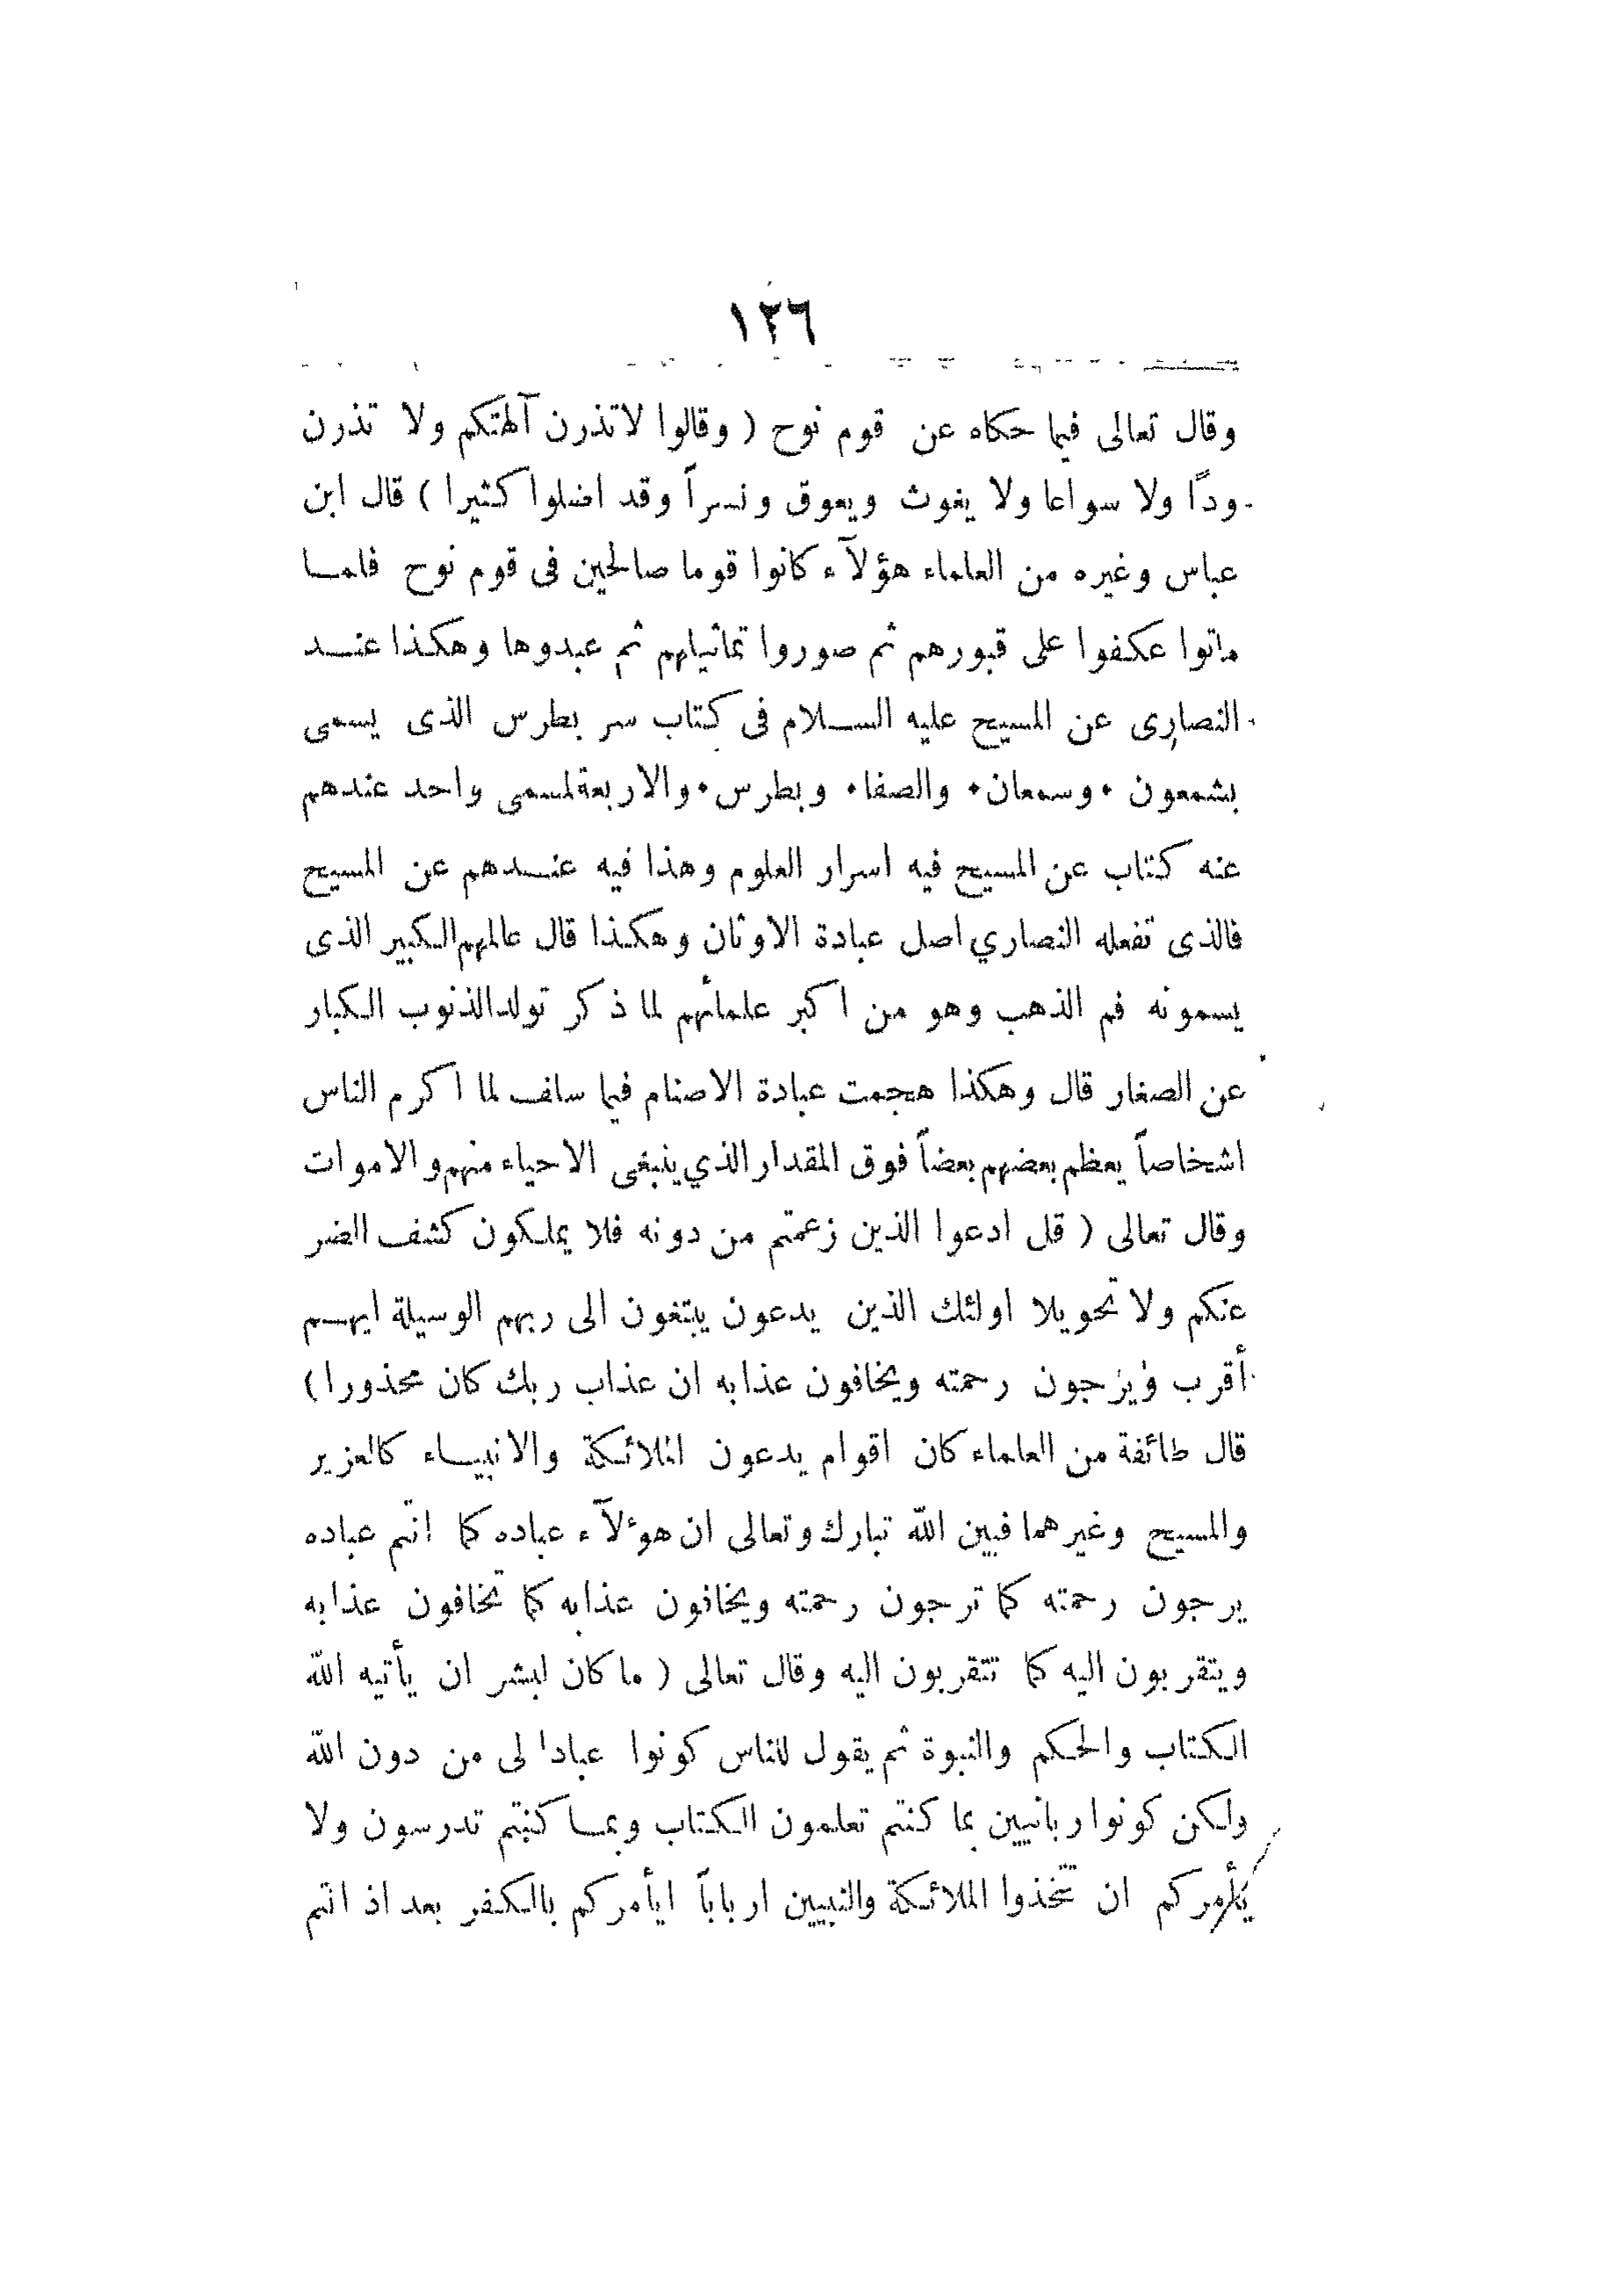 ١٢٦
وقال تعالى فيما حكاه عن قوم نوح ( وقالوا لاتذرن آلهتكم ولا تذرن
وداً ولا سواعا ولا يغوث ويعوق ونسراً وقد اضلوا كثيرا ) قال ابن
عباس وغيره من العلماء هؤلآء كانوا قوما صالحين فى قوم نوح فلمــا
ماتوا عكفوا على قبورهم ثم صوروا تماثيلهم ثم عبدوها وهكذا عنــد
النصارى عن المسيح عليه الســلام فى كتاب سر بطرس الذى يسمى
بشمعون • وسمعان • والصفا • وبطرس • والاربعة لمسمى واحد عندهم
عنه كتاب عن المسيح فيه اسرار العلوم وهذا فيه عنــدهم عن المسيح
فالذى تفعله النصاري اصل عبادة الاوثان وهكذا قال عالمهم الكبير الذى
يسمونه فم الذهب وهو من اكبر علمائهم لما ذكر تولد الذنوب الكبار
عن الصغار قال وهكذا هجمت عبادة الاصنام فيما سلف لما اكرم الناس
اشخاصاً يعظم بعضهم بعضاً فوق المقدار الذي ينبغى الاحياء منهم والاموات
وقال تعالى ( قل ادعوا الذين زعمتم من دونه فلا يملكون كشف الضر
عنكم ولا تحويلا اولئك الذين يدعون يبتغون الى ربهم الوسيلة ايهــم
أقرب ويرجون رحمته ويخافون عذابه ان عذاب ربك كان محذورا )
قال طائفة من العلماء كان اقوام يدعون الملائكة والانبيــاء كالعزير
والمسيح وغيرهما فبين الله تبارك وتعالى ان هوءلآء عباده كما انتم عباده
يرجون رحمته كما ترجون رحمته ويخافون عذابه كما تخافون عذابه
ويتقربون اليه كما تتقربون اليه وقال تعالى ( ما كان لبشر ان يأتيه الله
الكتاب والحكم والنبوة ثم يقول للناس كونوا عبادا لى من دون الله
ولكن كونوا ربانيين بما كنتم تعلمون الكتاب وبمــا كنتم تدرسون ولا
يأمركم ان تتخذوا الملائكة والنبيين ارباباً ايأمركم بالكفر بعد اذ انتم